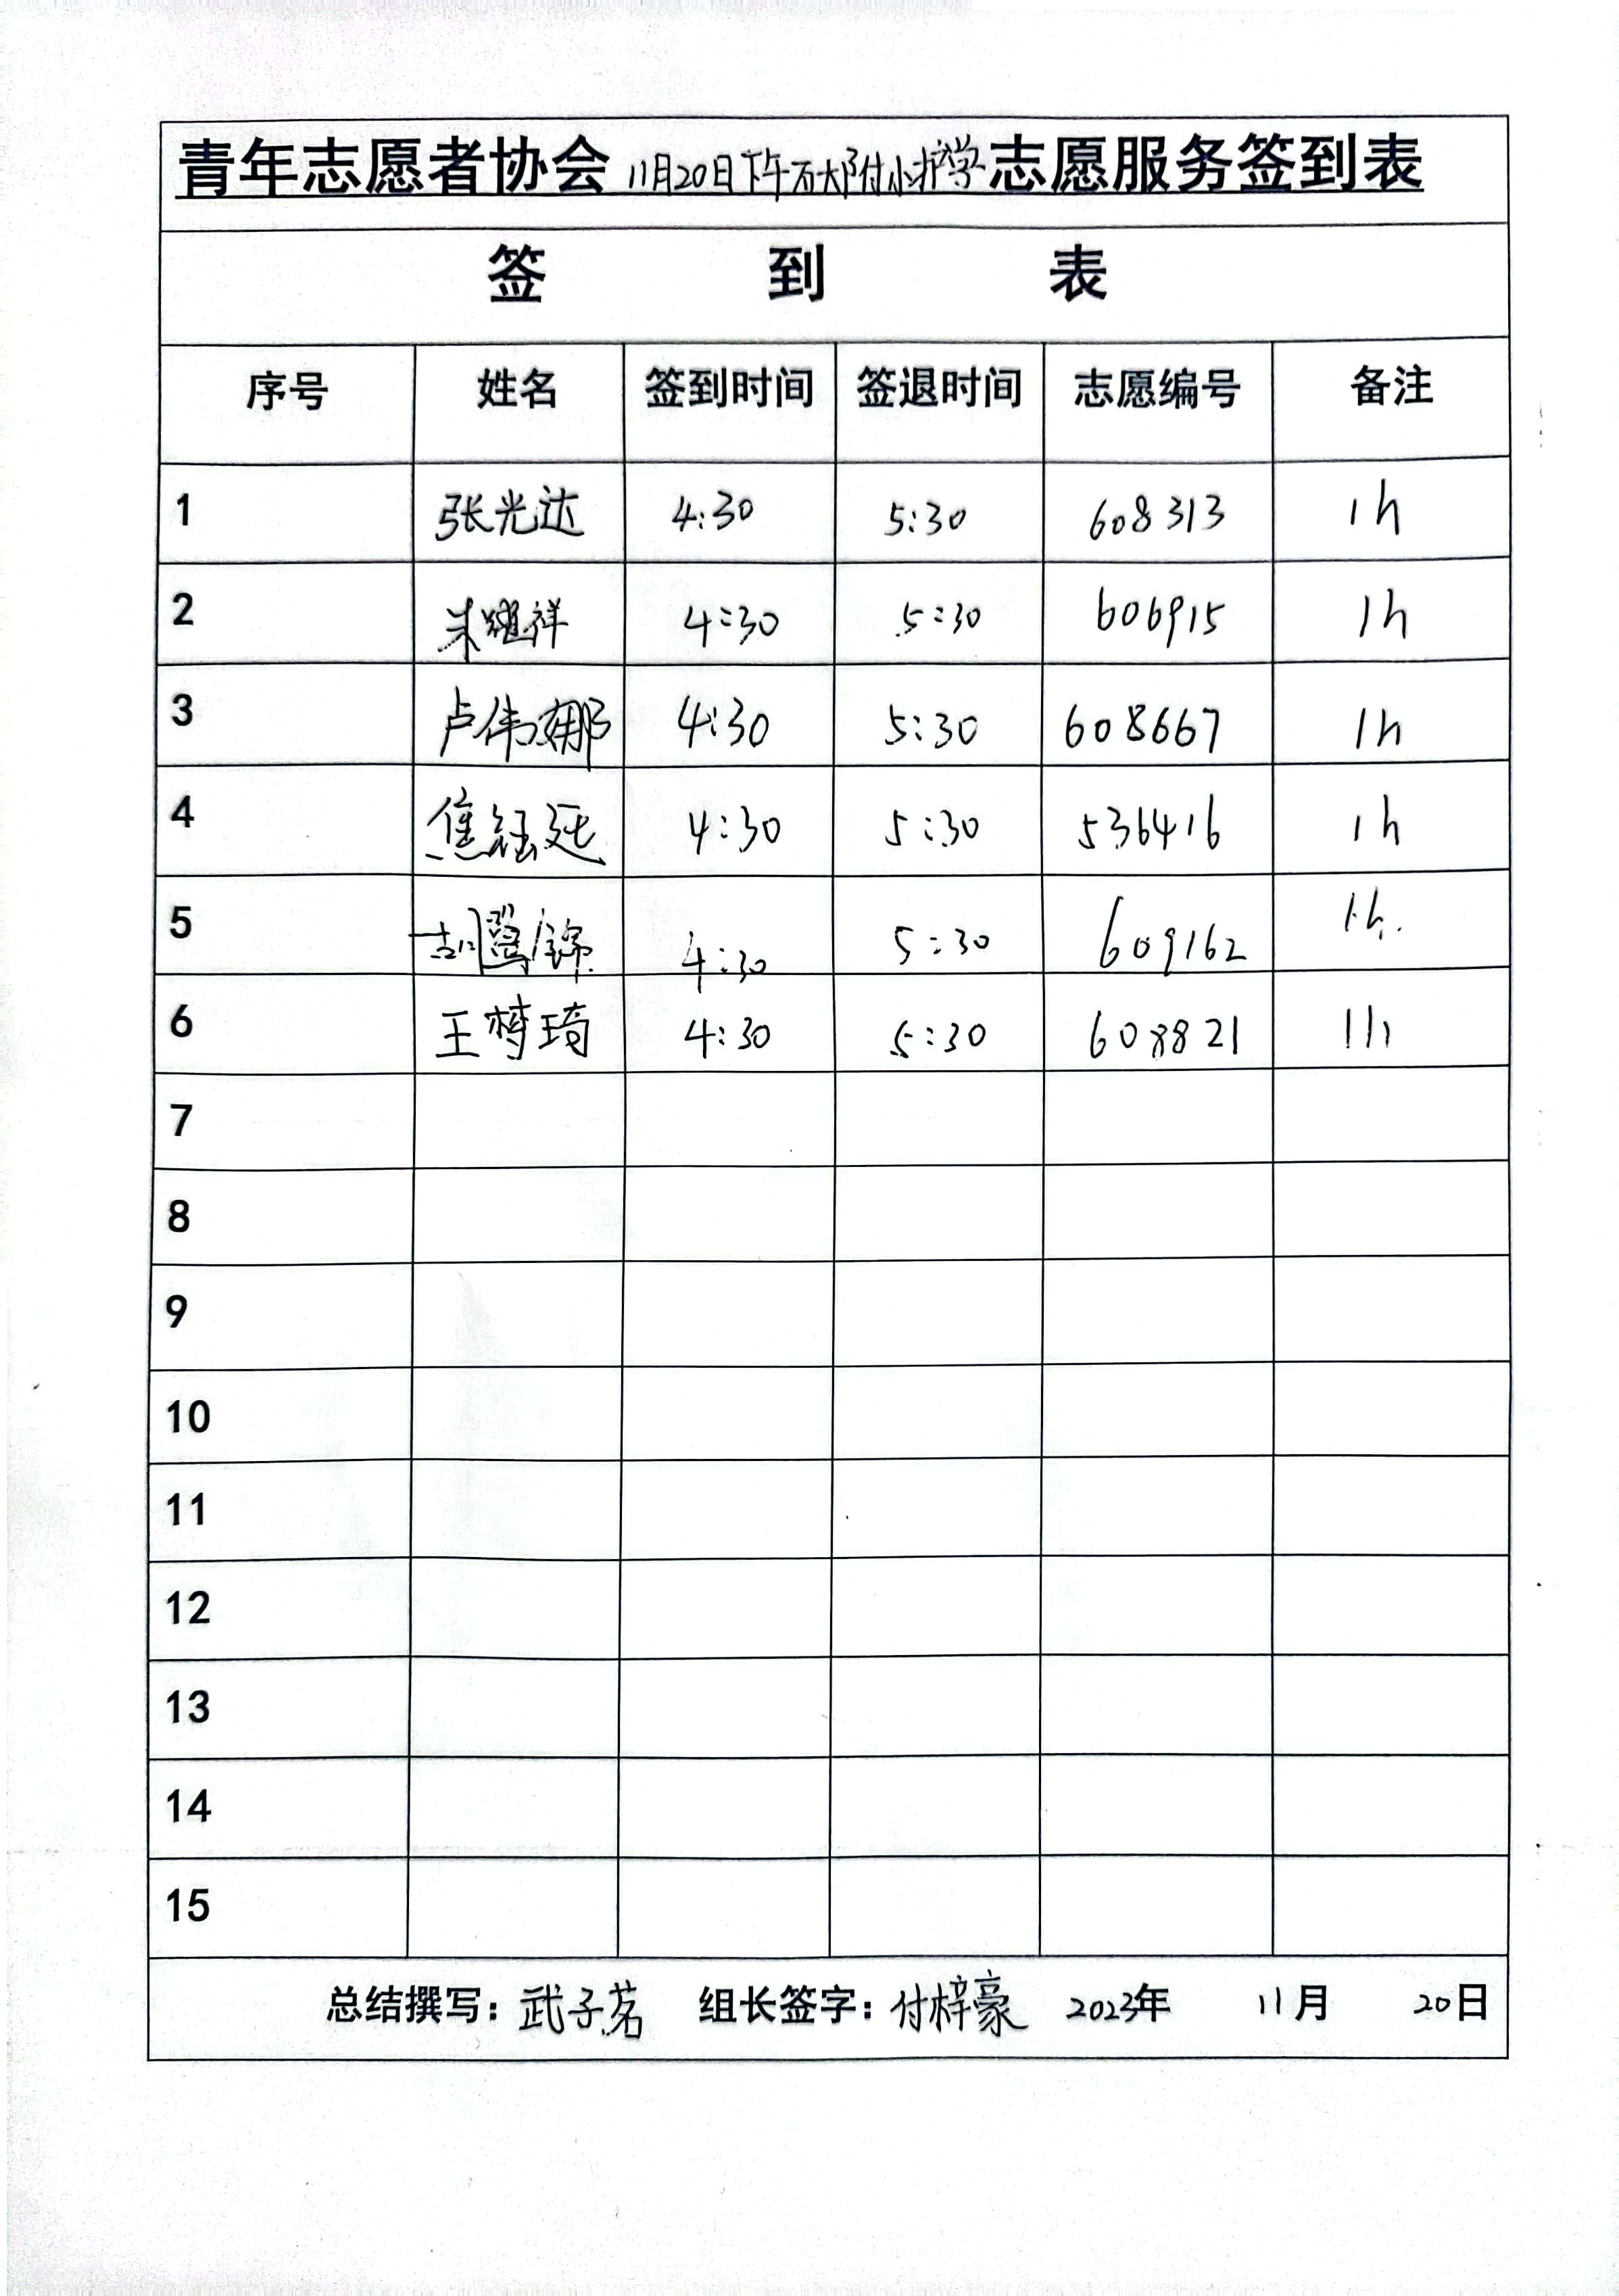 青年志愿者协会11月20日下午石大附小护学志愿服务签到表
签 到 表
序号 姓名 签到时间 签退时间 志愿编号 备注
1 张光达 4:30 5:30 608313 1h
2 朱耀祥 4:30 5:30 606915 1h
3 卢伟娜 4:30 5:30 608667 1h
4 焦钰廷 4:30 5:30 536416 1h
5 胡鹭锦 4:30 5:30 609162 1h.
6 王梦琦 4:30 5:30 608821 1h
7
8
9
10
11
12
13
14
15
总结撰写：武子茗 组长签字：付梓豪 2023年 11月 20日